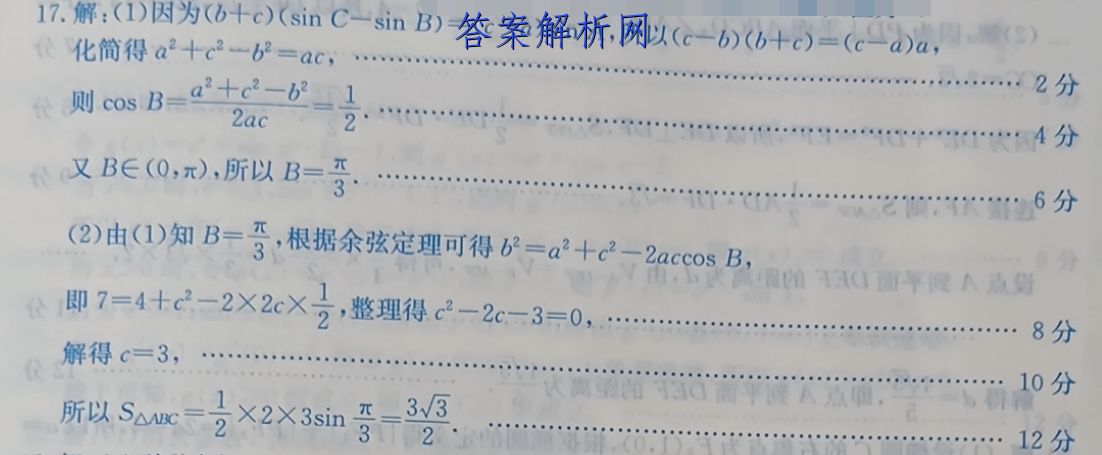 17.解:(1)因为(b+c)(sin C-sin B)=(c 以(c-b)(b+c)=(c-a)a,
答案解析网
化简得 a²+c²-b²=ac, 2分
则 cos B=\frac{a²+c²-b²}{2ac}=\frac{1}{2}. 4分
又 B∈(0,π),所以 B=\frac{π}{3}. 6分
(2)由(1)知 B=\frac{π}{3},根据余弦定理可得 b²=a²+c²-2accos B,
即 7=4+c²-2×2c×\frac{1}{2},整理得 c²-2c-3=0, 8分
解得 c=3, 10分
所以 S△ABC=\frac{1}{2}×2×3sin \frac{π}{3}=\frac{3√3}{2}. 12分